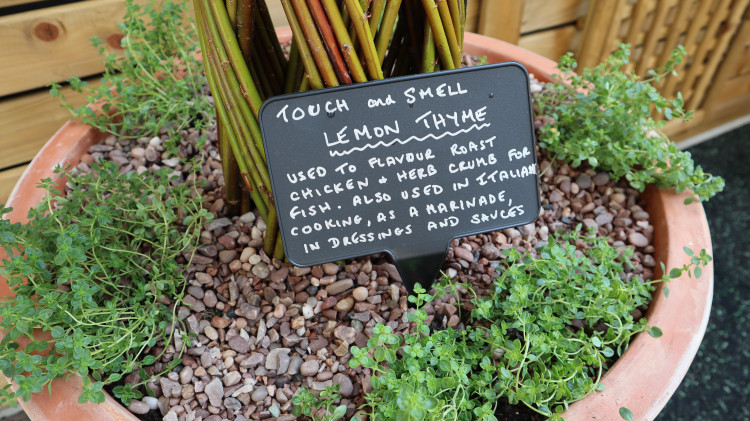 TOUCH and SMELL
LEMON THYME
USED TO FLAVOUR ROAST
CHICKEN + HERB CRUMB FOR
FISH. ALSO USED IN ITALIAN
COOKING, AS A MARINADE,
IN DRESSINGS AND SAUCES